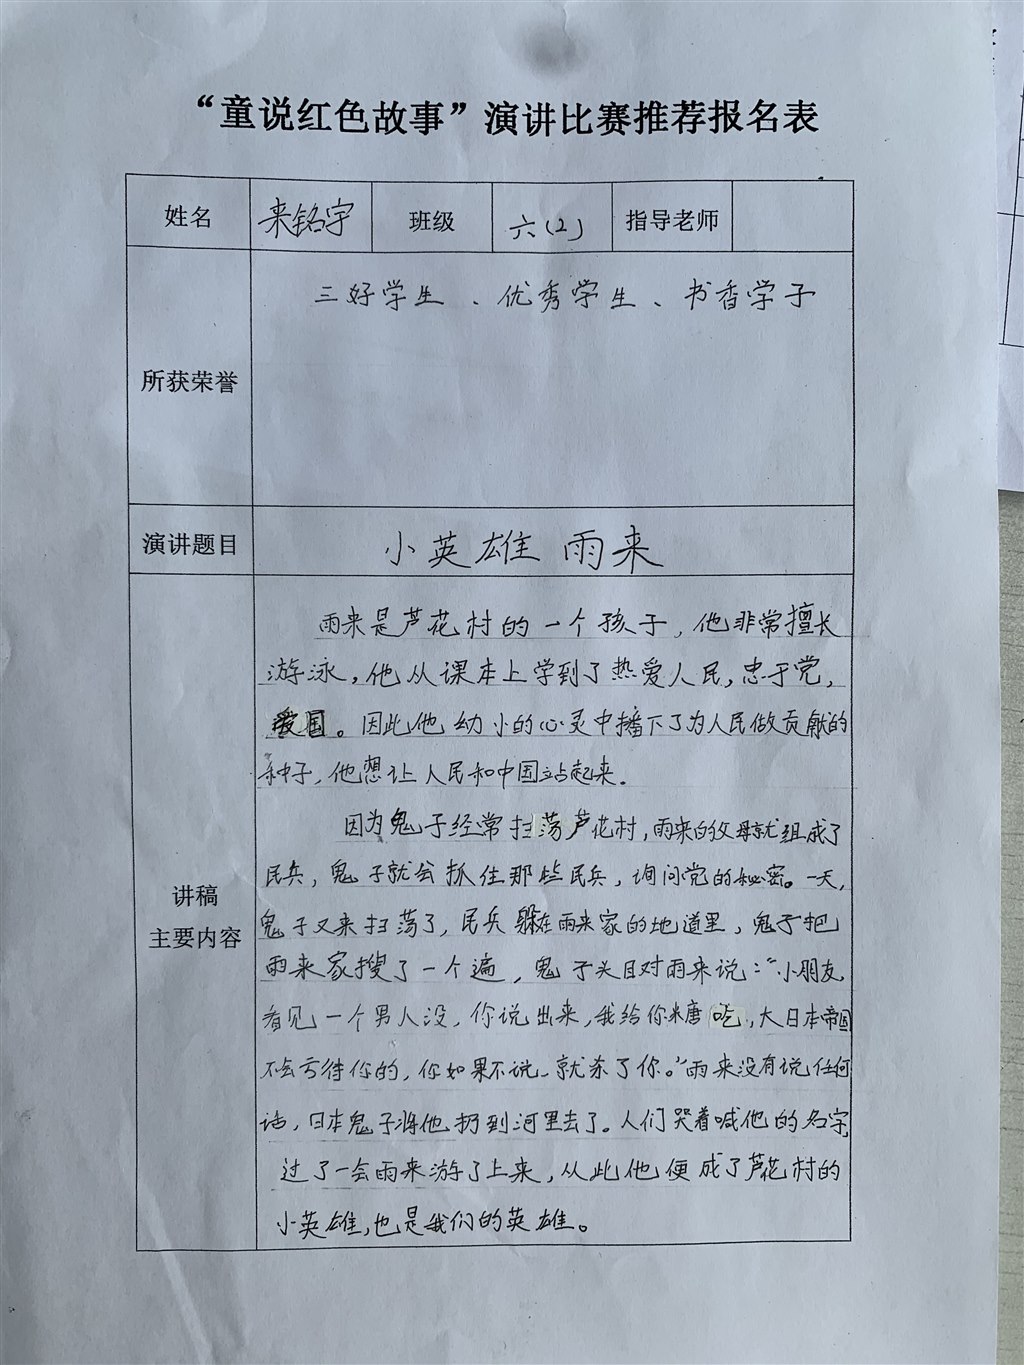 “童说红色故事”演讲比赛推荐报名表
姓名 来铭宇 班级 六(2) 指导老师
所获荣誉 三好学生、优秀学生、书香学子
演讲题目 小英雄 雨来
讲稿
主要内容
雨来是芦花村的一个孩子,他非常擅长
游泳,他从课本上学到了热爱人民,忠于党,
爱国。因此他幼小的心灵中播下了为人民做贡献的
种子,他想让人民和中国站起来.
因为鬼子经常扫荡芦花村,雨来的父母就组成了
民兵,鬼子就会抓住那些民兵,询问党的秘密。一天,
鬼子又来扫荡了,民兵躲在雨来家的地道里,鬼子把
雨来家搜了一个遍,鬼子头目对雨来说:“小朋友
看见一个男人没,你说出来,我给你糖吃,大日本帝国
不会亏待你的,你如果不说、就杀了你。”雨来没有说任何
话,日本鬼子将他扔到河里去了。人们哭着喊他的名字,
过了一会雨来游了上来,从此他便成了芦花村的
小英雄,也是我们的英雄。